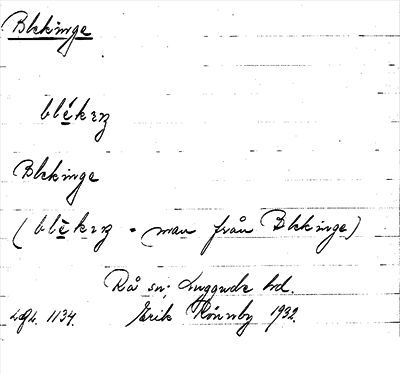 Blekinge
blékıŋ
Blekinge
(blèkıŋ = man från Blekinge)
Rå sn; Luggude hd.
Lgl. 1134. Erik Rönnby 1932.